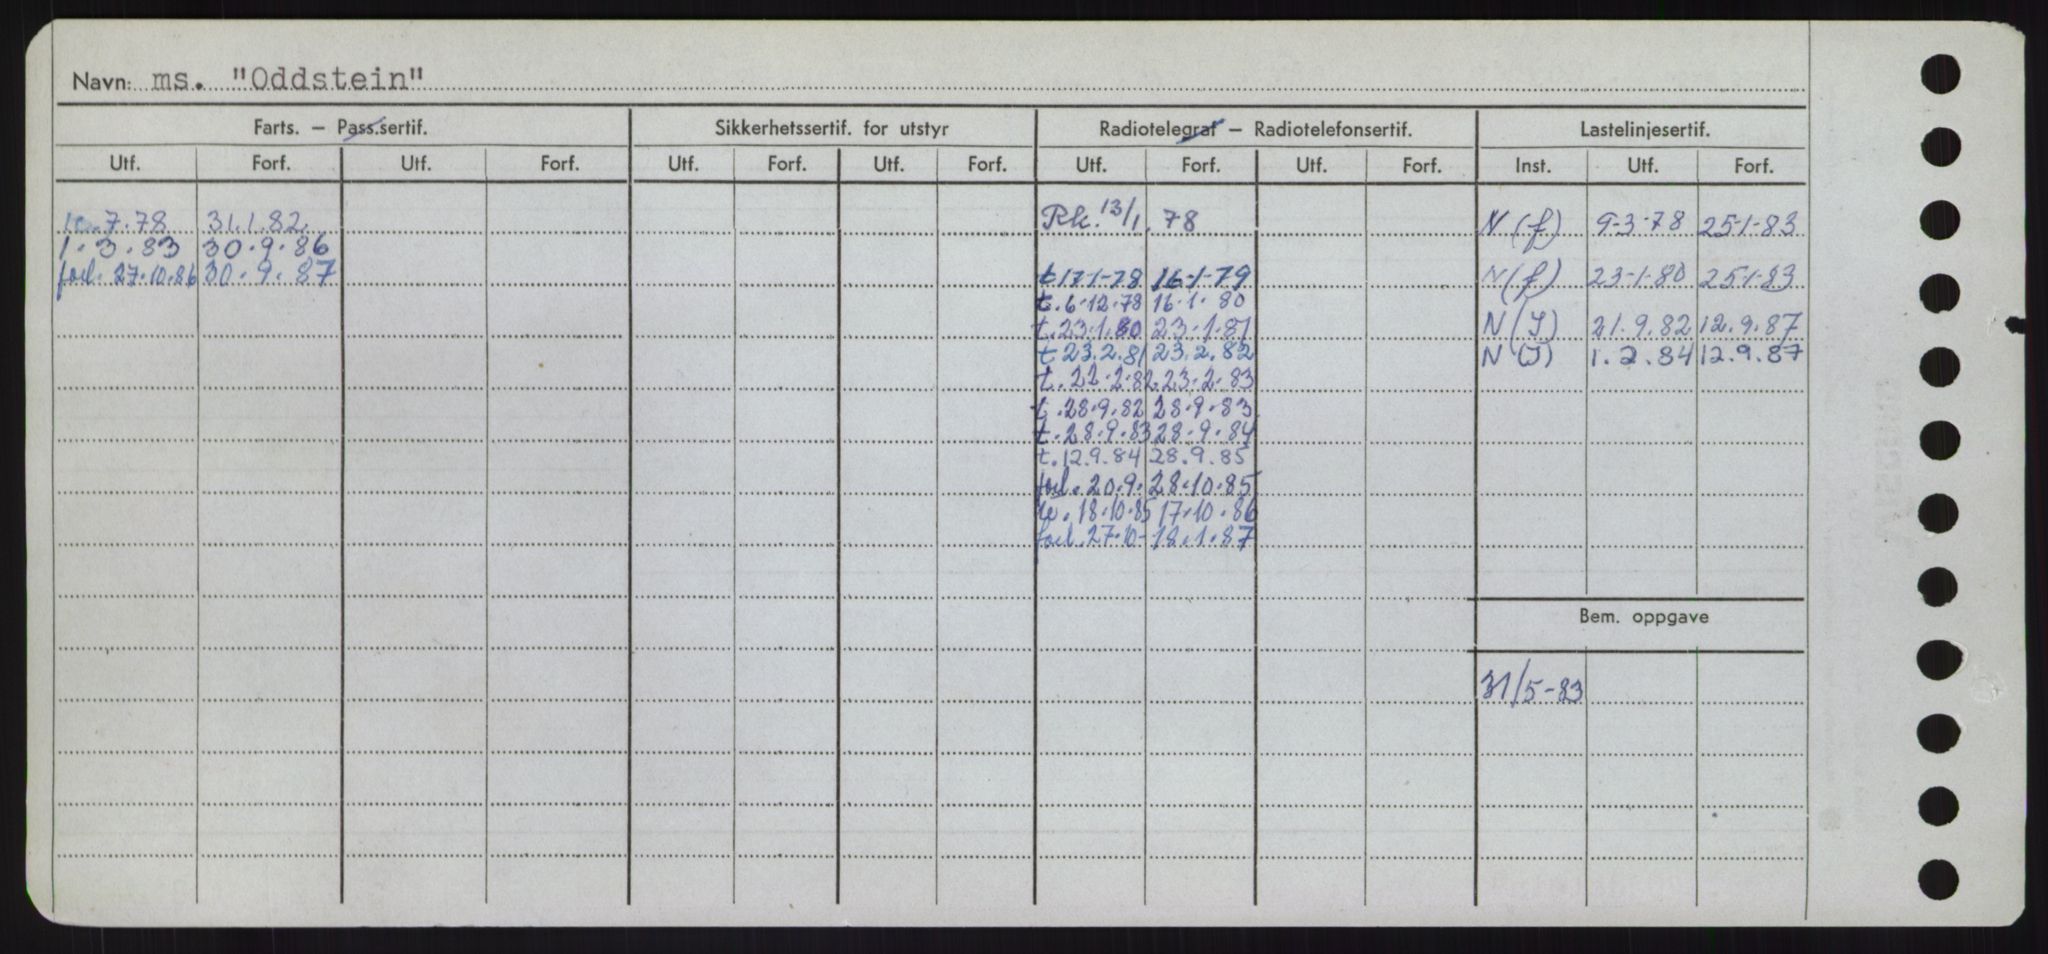 Navn: ms. "Oddstein"
Farts. — Pass.sertif. Sikkerhetssertif. for utstyr Radiotelegraf — Radiotelefonsertif. Lastelinjesertif.
Utf. Forf. Utf. Forf. Utf. Forf. Utf. Forf. Utf. Forf. Utf. Forf. Inst. Utf. Forf.
10.7.78 31.1.82 Rk. 13/1.78 N (f) 9-3-78 25-1-83
1.3.83 30.9.86
forl. 27.10.86 30.9.87 t 17-1-78 16-1-79 N (f) 23-1-80 25-1-83
t. 6.12.78 16.1.80
t. 23.1.80 23.1.81 N (I) 21.9.82 12.9.87
t 23.2.81 23.2.82 N (I) 1.2.84 12.9.87
t. 22.2.82 23.2.83
t. 28.9.82 28.9.83
t. 28.9.83 28.9.84
t. 12.9.84 28.9.85
forl. 20.9. 28.10.85
18.10.85 17.10.86
forl. 27.10- 18.1.87
Bem. oppgave
31/5-83